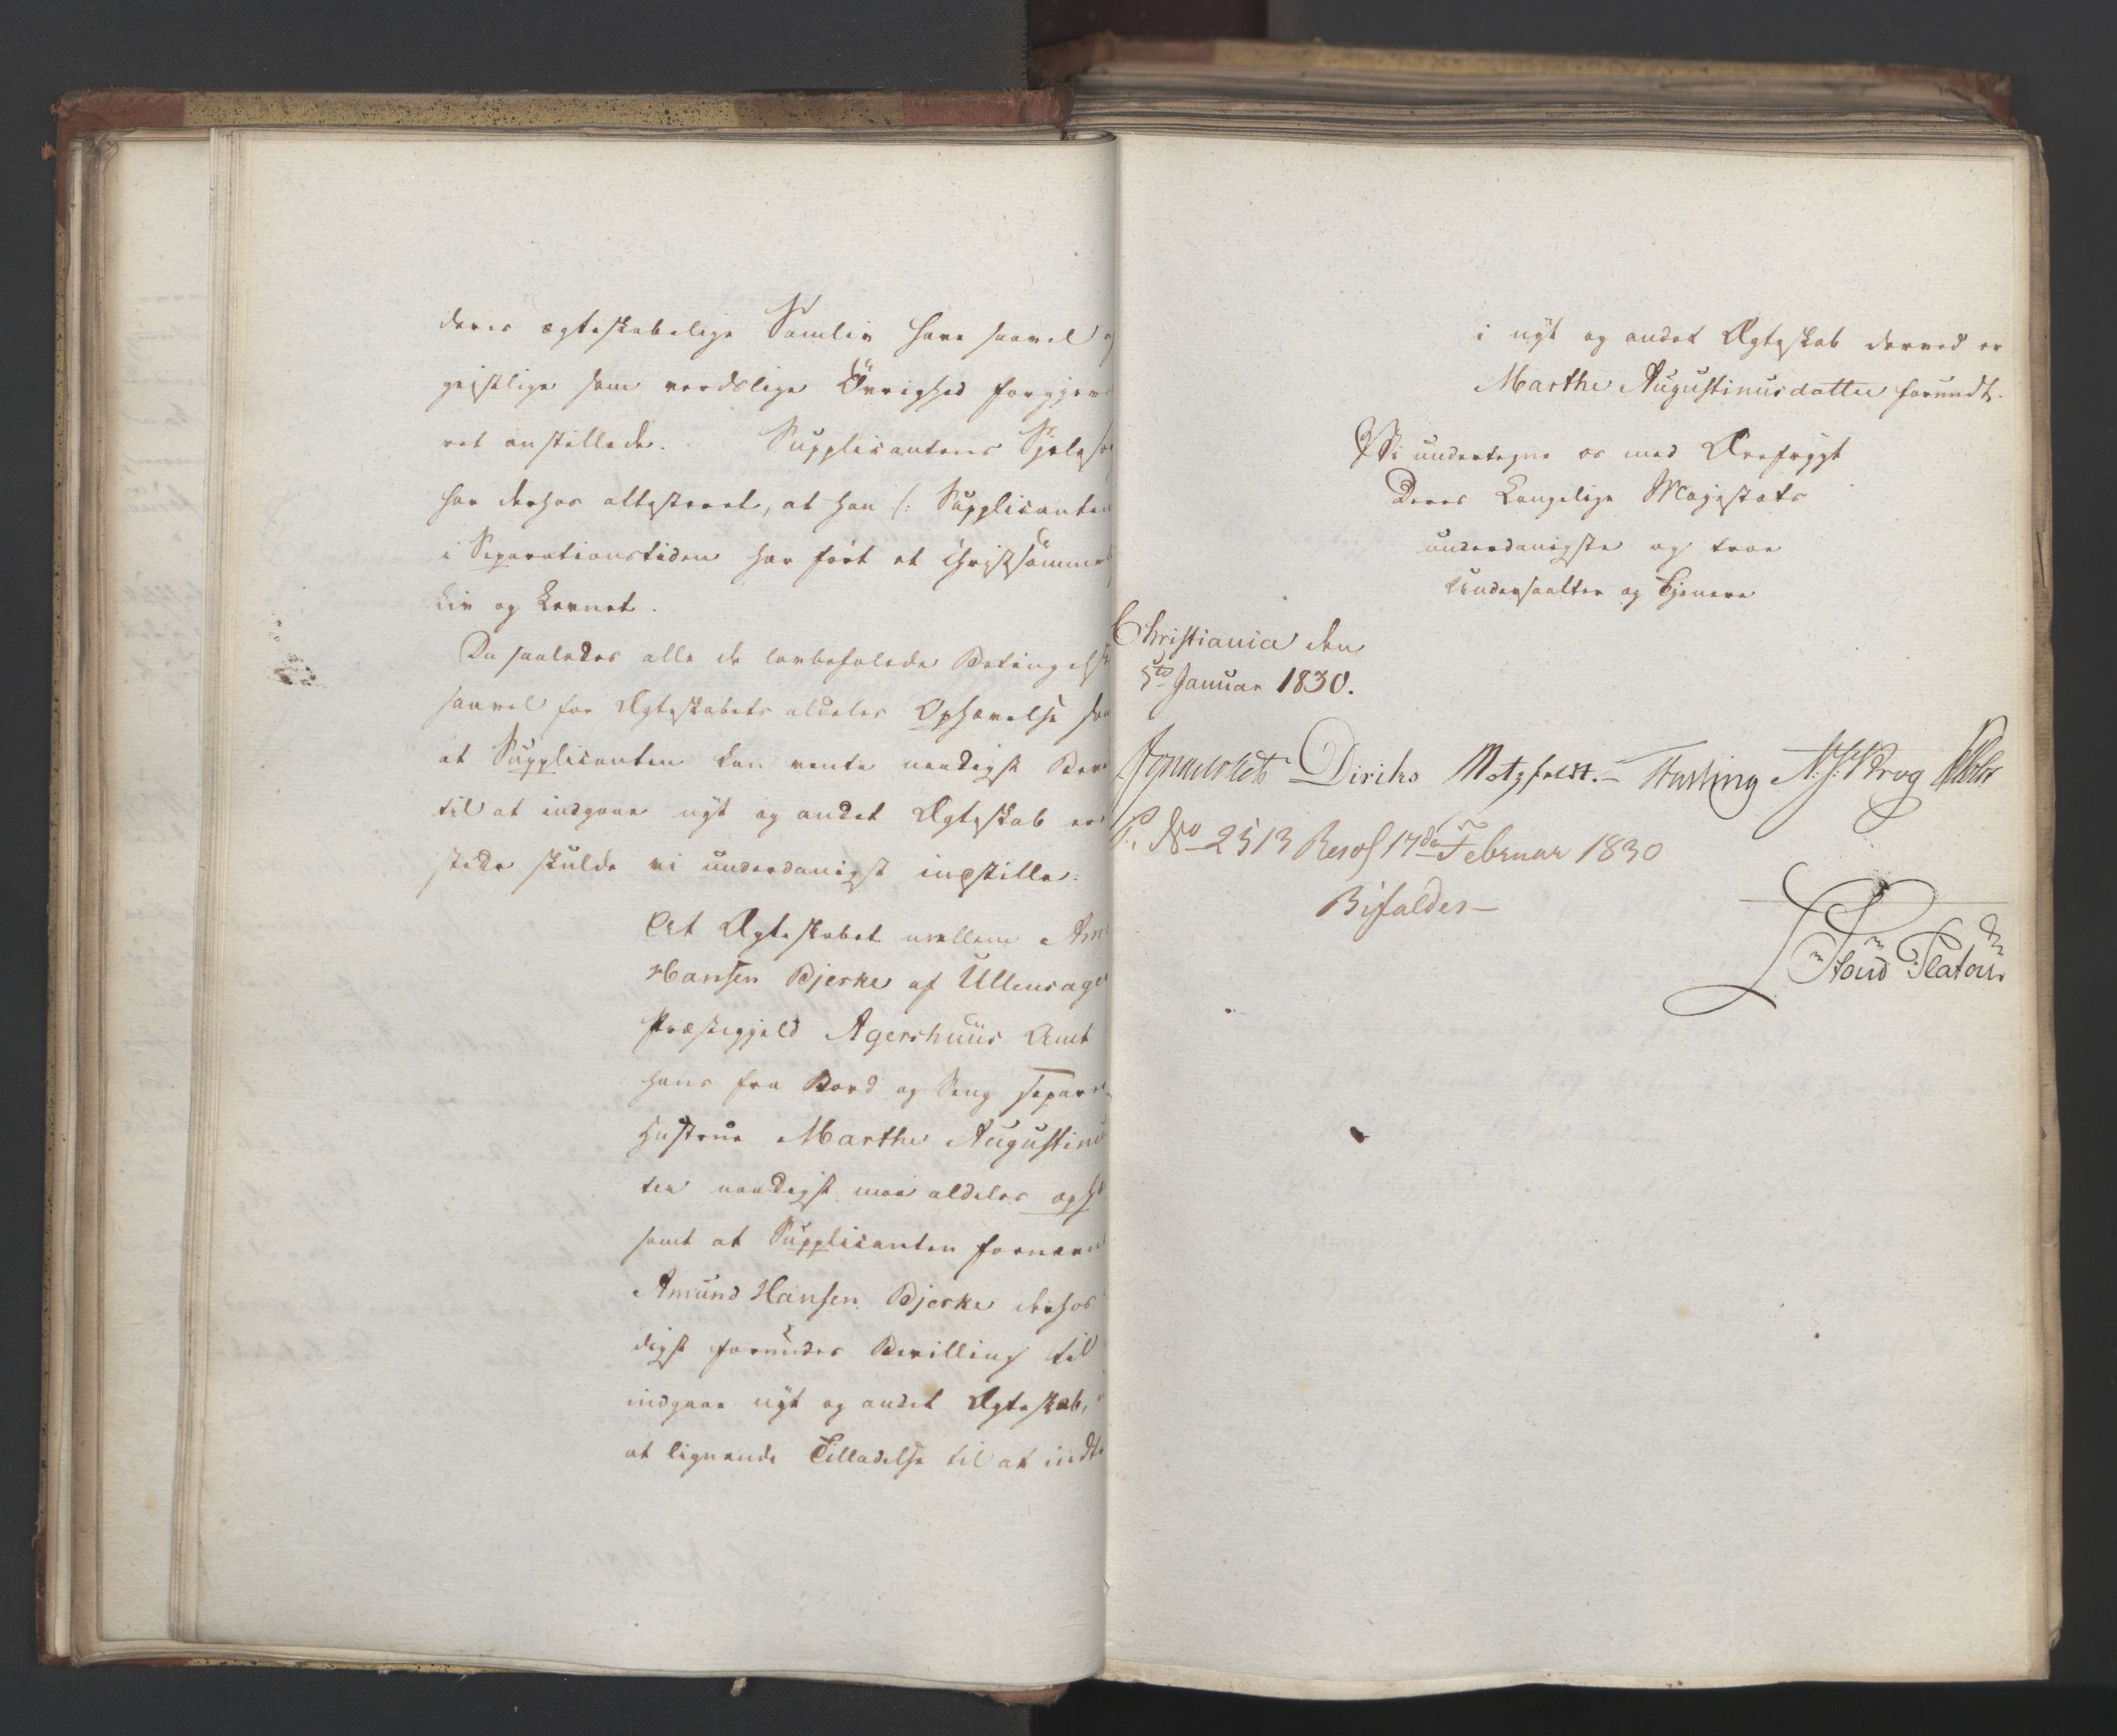 deres ægteskabelige Samliv have saavel
geistlige som verdslige Øvrighed forgjæv
vet anstillede. Supplicantens Sjelesø
har derhos attesteret, at han /: Supplicanten
i Separationstiden har ført et Christsømme
Liv og Levnet.
Da saaledes alle de lovbefalede Betingelse
saavel for Ægteskabets aldeles Ophævelse som
at Supplicanten kan vente naadigst Bev
til at indgaae nyt og andet Ægteskab ere
stede skulde vi underdanigst indstille:
At Ægteskabet mellem Am
Hansen Bjerke af Ullensager
Præstegjeld Agershuus Amt
hans fra Bord og Seng separe
Hustrue Marthe Augustinu
ter naadigst maa aldeles ophæ
samt at Supplicanten fornævn
Amund Hansen Bjerke derhos
digst forundes Bevilling til
indgaae nyt og andet Ægteskab,
at lignende Tilladelse til at indtr
i nyt og andet Ægteskab derved er
Marthe Augustinusdatter forundt.
Vi undertegne os med Ærefrygt
Deres Kongelige Majestæts
underdanigste og troe
Undersaatter og Tjenere
Christiania den
5te Januar 1830.
Diriks Motzfeldt. Fasting Krog
No 2513 Resol 17de Februar 1830
Bifaldes
Platou